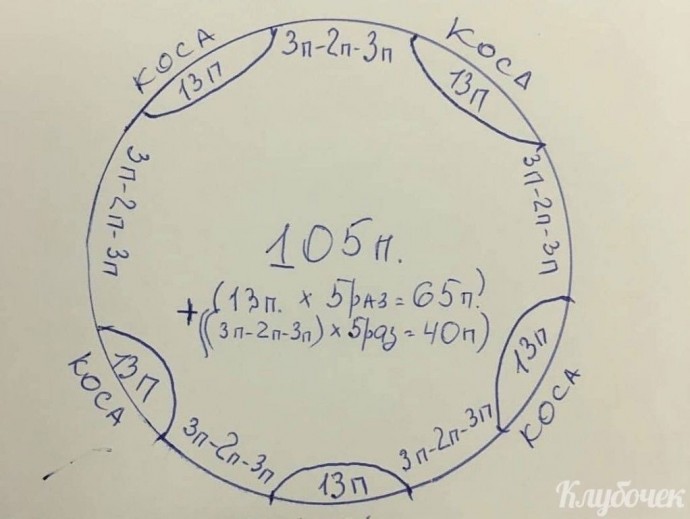 КОСА
13п
3п-2п-3п
КОСА
13п
3п-2п-3п
3п-2п-3п
105п.
+(13п. х 5раз = 65п.)
((3п-2п-3п) х 5раз = 40п)
13п
КОСА
13п
КОСА
3п-2п-3п
3п-2п-3п
13п
Клубочек